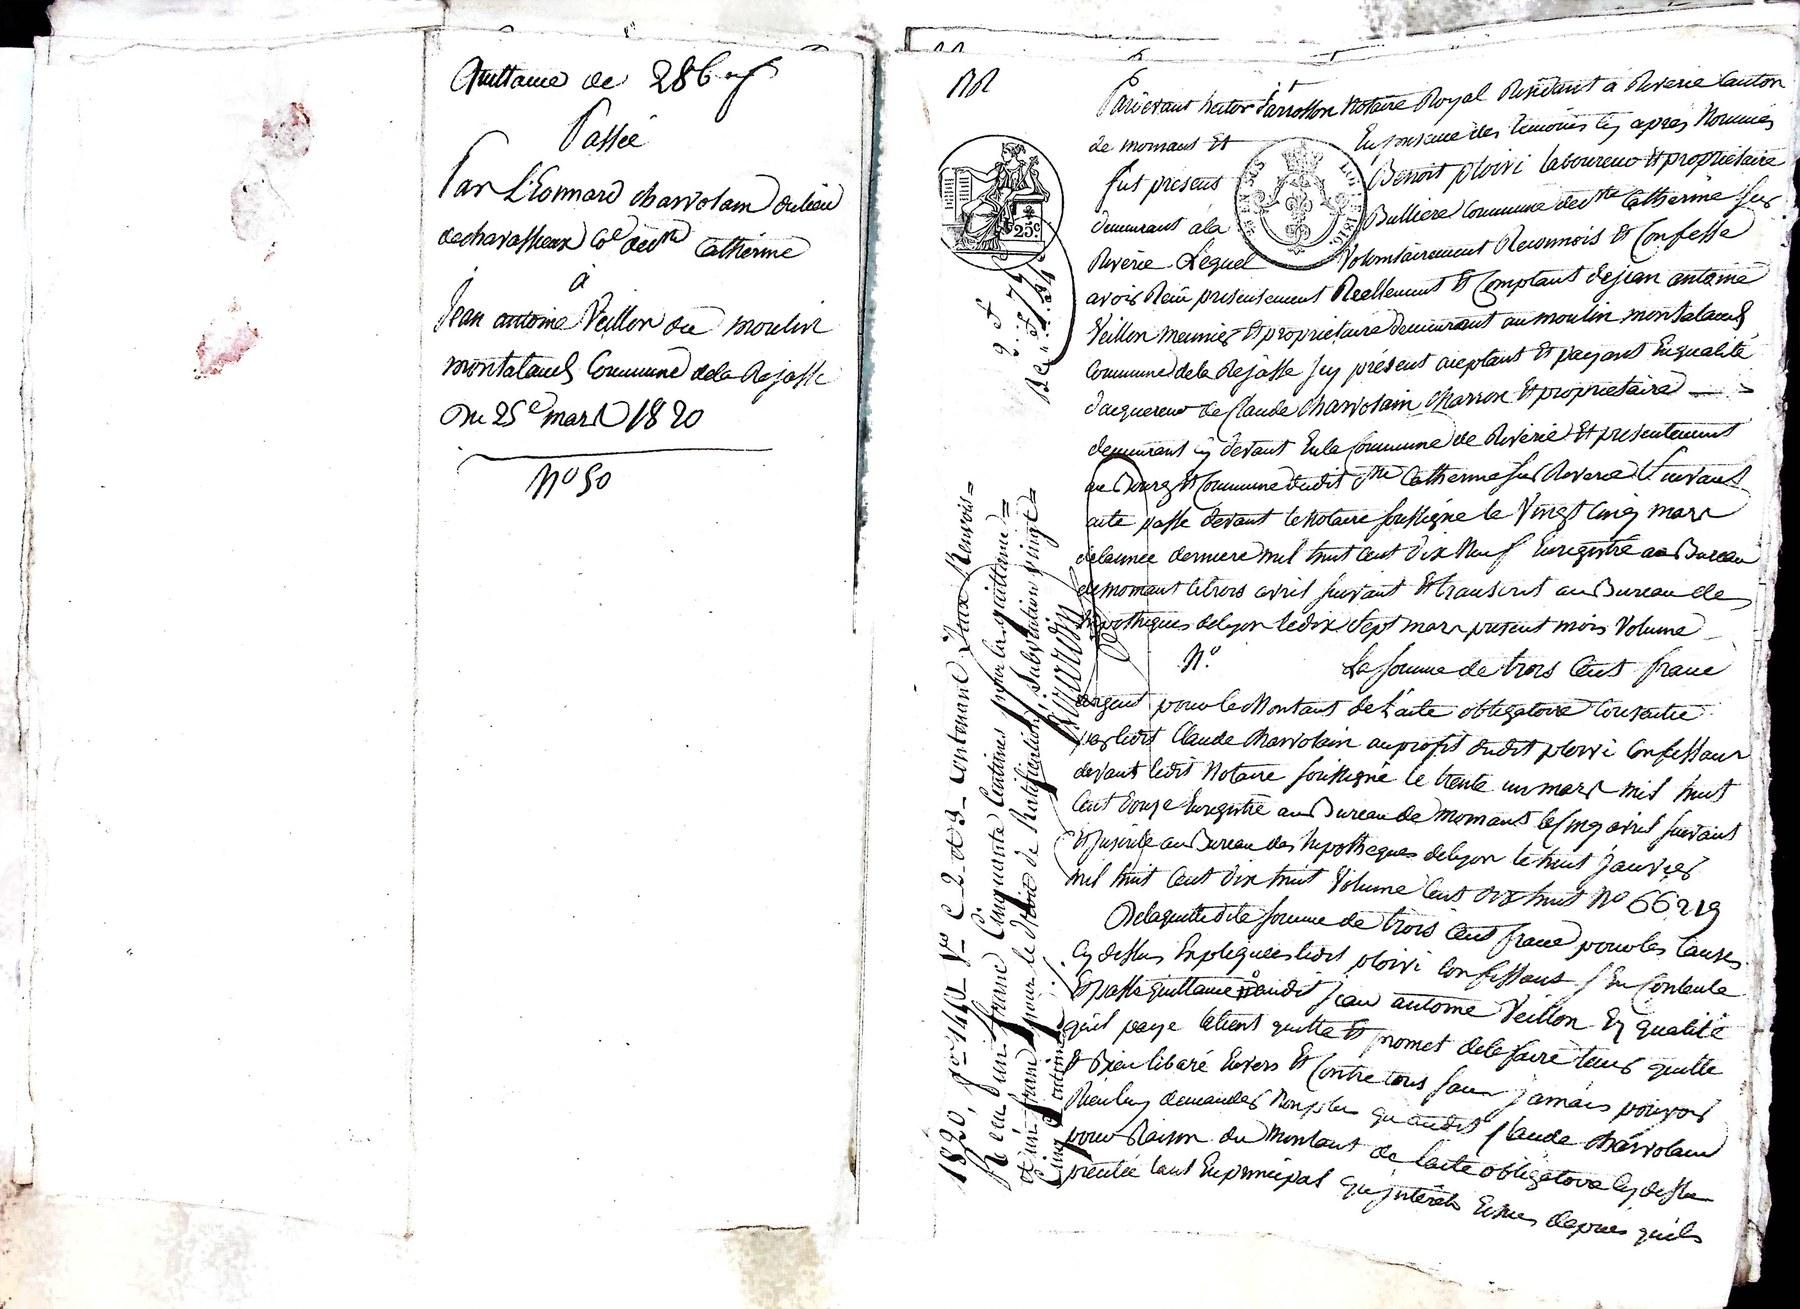 Quittance de 286 f
Passée
Par Léonnard charvolain du lieu
de charassieux Ce de ste Catherine
à
Jean antoine Veillon du moulin
montaland Commune de la Rajasse
Du 25e mars 1820
No 50
RR
Pardevant notaire Royal Résidant à Riverie Canton
de mornant Et En présence des temoins cy après Nommés
fut présent Benoit ploivi laboureur Et propriétaire
demeurant à la Bulliere Commune de ste Catherine sur
Riverie Lequel Volontairement Reconnois Et Confesse
avoir Reçu présentement Réellement Et Comptant de jean antoine
Veillon meunier Et propriétaire demeurant au moulin montaland
Commune de la Rajasse Icy présent aceptant Et payant En qualité
d'acquereur de Claude Charvolain Charron Et propriétaire
demeurant cy devant En la Commune de Riverie Et présentement
au Bourg Et Commune dudit ste Catherine sur Riverie Suivant
acte passé devant le Notaire soussigné le Vingt Cinq mars
de l'année derniere mil huit Cent dix Neuf Enregistré au Bureau
de mornant le trois avril suivant Et transcrit au Bureau des
hypotheques de lyon le dix Sept mars présent mois Volume
No La somme de trois Cent francs
argent pour le Montant de l'acte obligatoire Consentie
par ledit Claude Charvolain au profit dudit ploivi Confessant
devant ledit Notaire soussigné le trente un mars mil huit
Cent douze Enregistré au Bureau de mornant le Cinq avril suivant
Et Inscrite au Bureau des hypotheques de lyon le huit janvier
mil huit Cent dix huit Volume Cent dix huit No 66219
De laquelle dite somme de trois Cent francs pour les Causes
Cy dessus Expliquées ledit ploivi Confessant S'En Contente
Et passe quittance audit jean antoine Veillon En qualité
qu'il paye le tient quitte Et promet de le faire tenir quitte
Et Bien libéré Envers Et Contre tous sans jamais pouvoir
Rien luy demander Non plus qu'audit Claude Charvolain
pour Raison du Montant de l'acte obligatoire Cy dessus
prentée tant En principal qu'intérêts Echus depuis qu'ils
25c
LOI 1816
1820, fo 140 Vo C. 2. et 3. Contenant deux Renvois =
Reçu un franc Cinquante Centimes pour la quittance =
et un franc pour le droit de Ratification, Subvention vingt =
Cinq Centimes